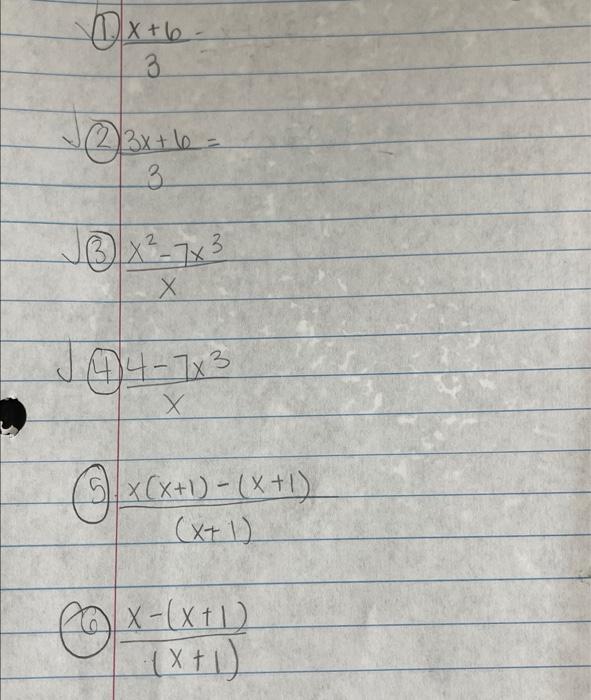 ✓ ① x + 6 =
3
✓ ② 3x + 6 =
3
✓ ③ x² - 7x³
x
✓ ④ 4 - 7x³
x
⑤ x(x+1) - (x+1)
(x+1)
⑥ x - (x+1)
(x+1)